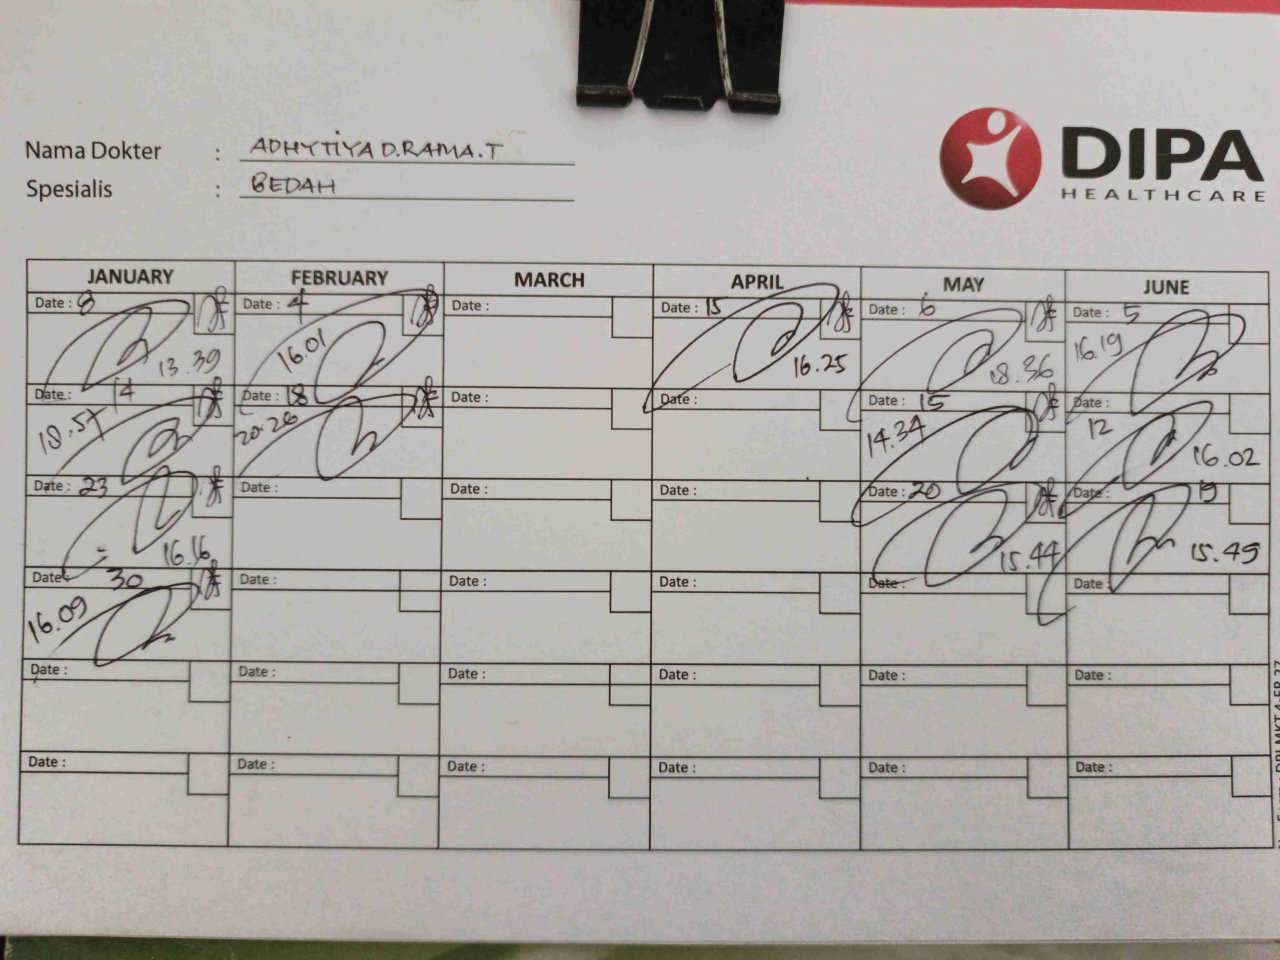 Nama Dokter : ADHYTIYA D.RAMA.T
Spesialis : BEDAH
DIPA
HEALTHCARE
JANUARY FEBRUARY MARCH APRIL MAY JUNE
Date : 8 Date : 4 Date : Date : 15 Date : 6 Date : 5
13.39 16.01 16.25 18.36 16.19
Date : 14 Date : 18 Date : Date : Date : 15 Date : 12
18.57 20.26 14.34 16.02
Date : 23 Date : Date : Date : Date : 20 Date : 19
16.16 15.44 15.49
Date : 30 Date : Date : Date : Date : Date :
16.09
Date : Date : Date : Date : Date : Date :
Date : Date : Date : Date : Date : Date :